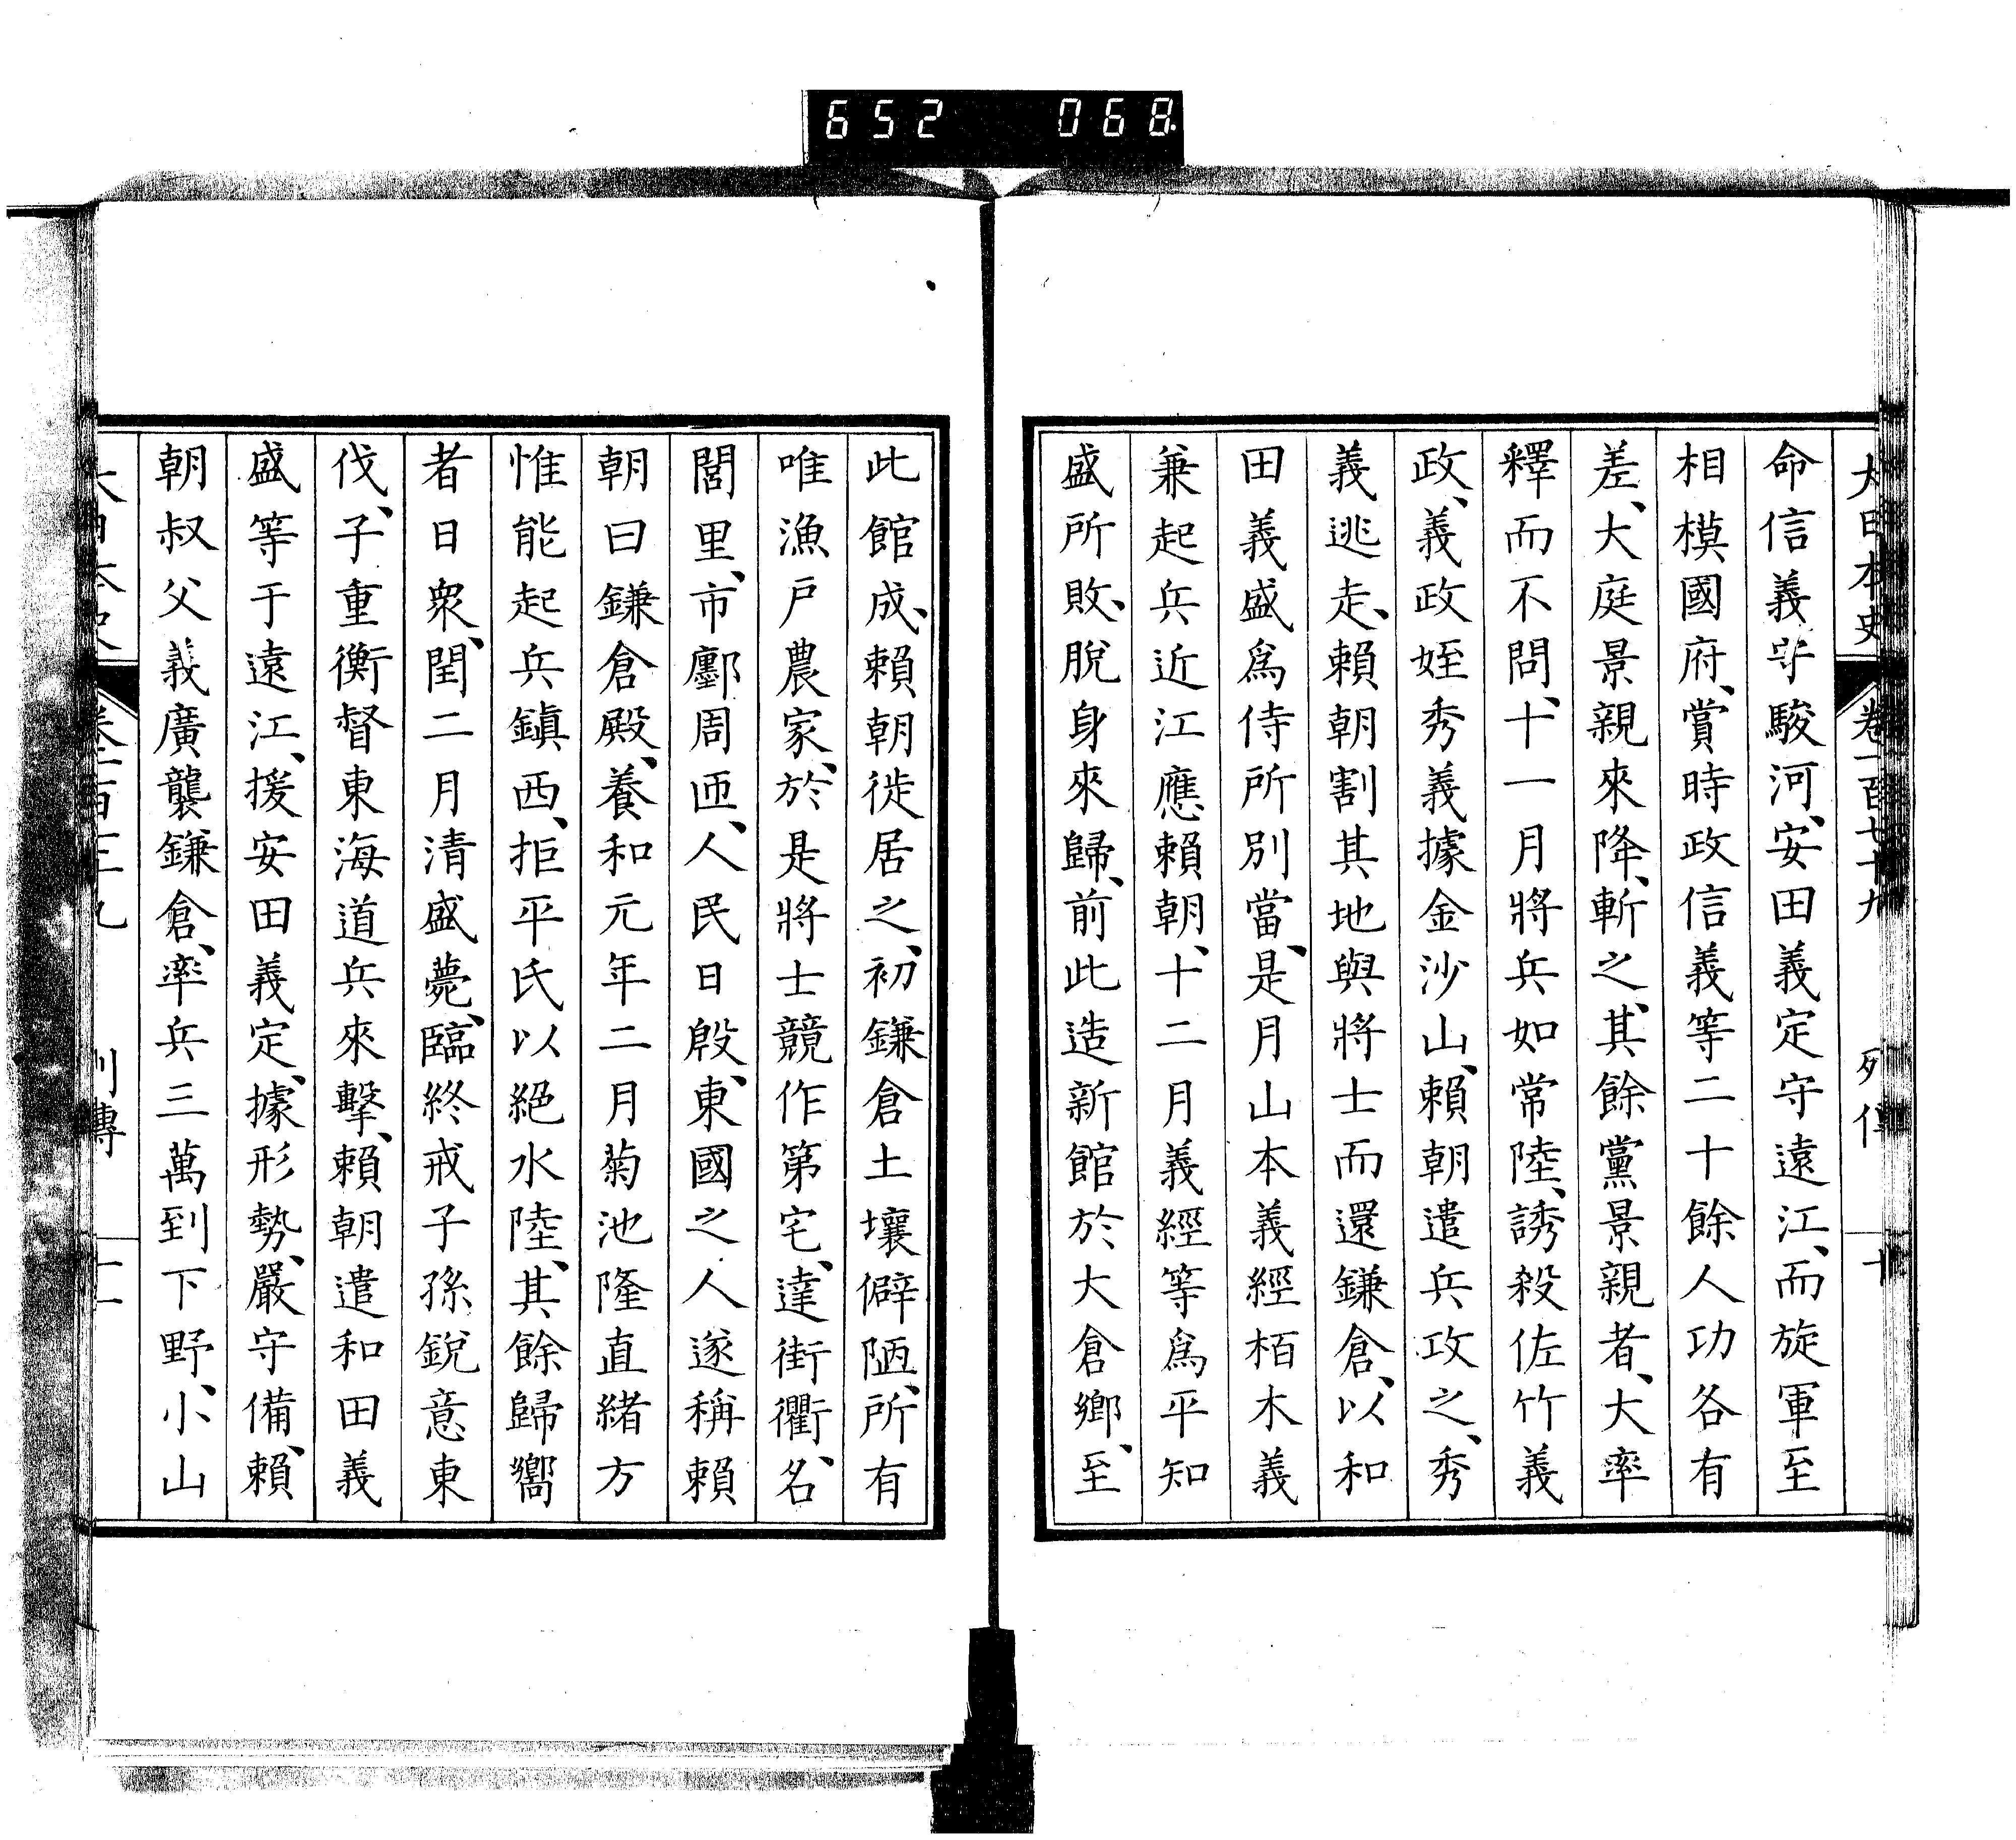 652 068
大日本史 卷一百七十九 列傳 十
命信義守駿河、安田義定守遠江、而旋軍至
相模國府、賞時政信義等二十餘人功各有
差、大庭景親來降、斬之、其餘黨景親者、大率
釋而不問、十一月將兵如常陸、誘殺佐竹義
政、義政姪秀義據金沙山、賴朝遣兵攻之、秀
義逃走、賴朝割其地與將士而還鎌倉、以和
田義盛爲侍所別當、是月山本義經栢木義
兼起兵近江應賴朝、十二月義經等爲平知
盛所敗、脫身來歸、前此造新館於大倉鄉、至
此館成、賴朝徙居之、初鎌倉土壤僻陋、所有
唯漁戶農家、於是將士競作第宅、達街衢、名
閭里、市鄽周匝、人民日殷、東國之人遂稱賴
朝曰鎌倉殿、養和元年二月菊池隆直緒方
惟能起兵鎭西、拒平氏以絕水陸、其餘歸嚮
者日衆、閏二月清盛薨、臨終戒子孫銳意東
伐、子重衡督東海道兵來擊、賴朝遣和田義
盛等于遠江、援安田義定、據形勢、嚴守備、賴
朝叔父義廣襲鎌倉、率兵三萬到下野、小山